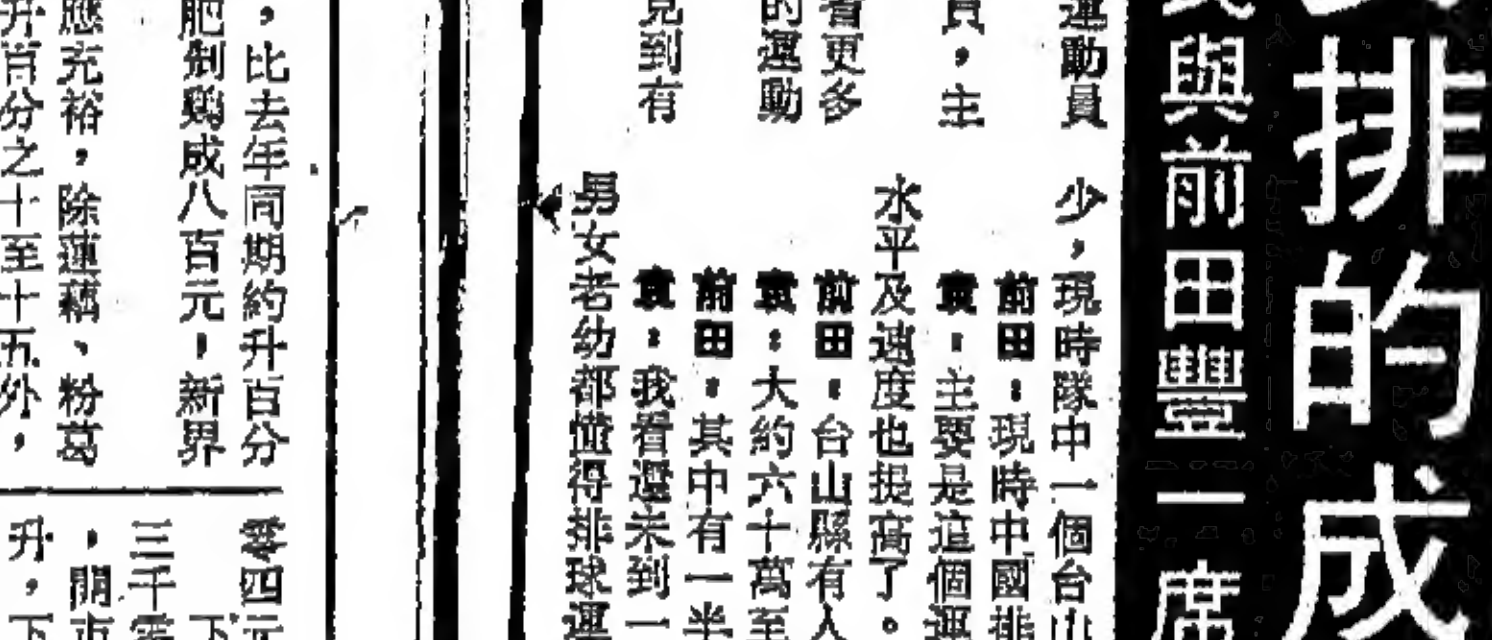 排的成
與前田豐一席
運動員
少，現時隊中一個台山
前田：現時中國排
員，主
袁：主要是這個運
水平及速度也提高了。
着更多
前田：台山縣有人
的運動
袁：大約六十萬至
前田：其中有一半
見到有
袁：我看還未到一
男女老幼都懂得排球運
，比去年同期約升百分
肥劏鷄成八百元，新界
應充裕，除蓮藕、粉葛
升百分之十至十五外，
零四元
下
三千零
，開市
升，下